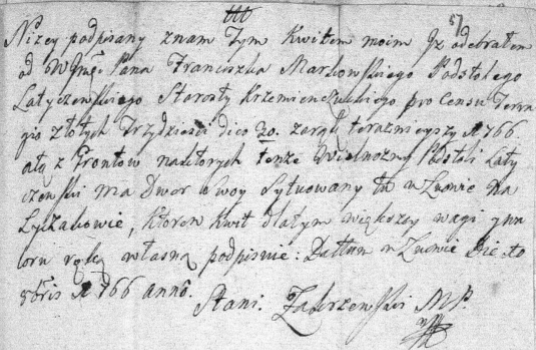 57
Niżey podpisany znam Tym Kwitem moim Jz odebrałem
od WGnego Pana Franciszka Markowskiego Podstolego
Latyczewskiego Starosty Krzemienczuckiego pro Censu Terra
gio złotych Trzydziesci dico 30. teraznieyszy 1766
z Grontow naktorych tenze Wielmozny Podstoli Laty
czewski ma Dwor Swoy Sytuowany tu w Lwowie Na
Lyczakowie, Ktoren Kwit dla tym większey wagi y
ręką własną podpisuię: Dattum w Lwowie Die
8bris 1766 anno.
Stani. Zakrzewski MP.